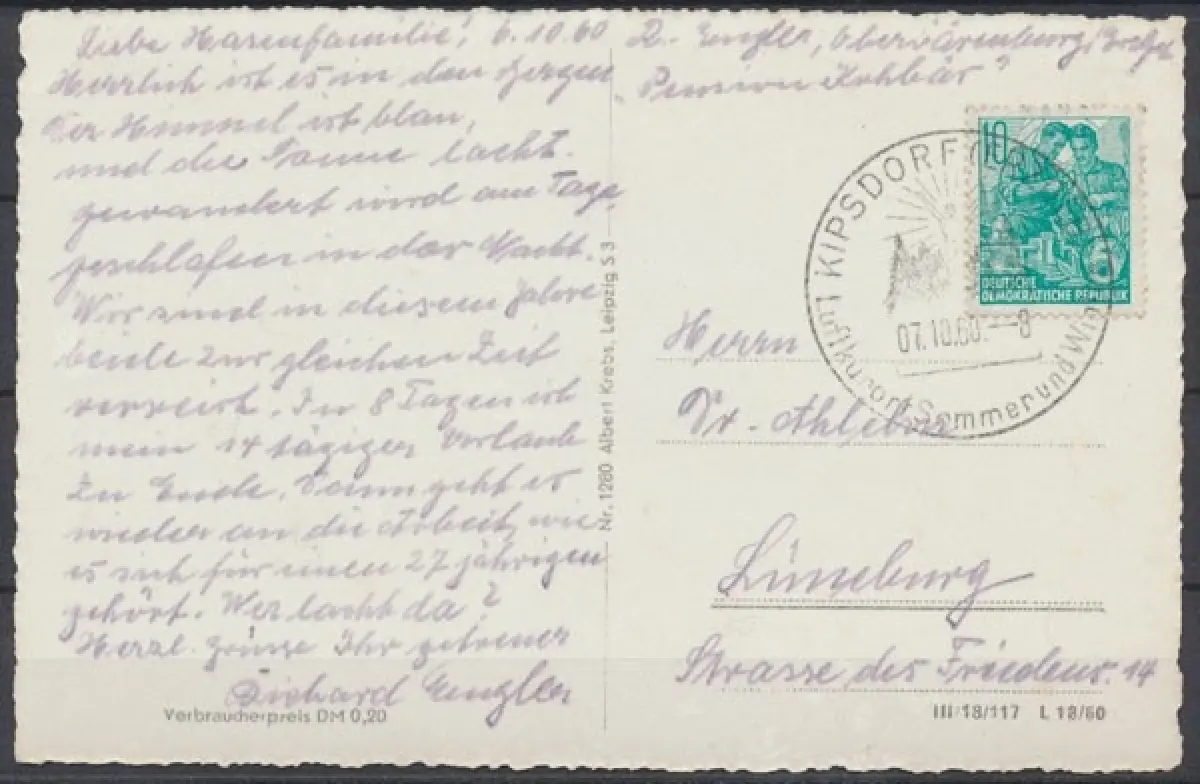 Liebe Hasenfamilie! 6.10.60
Herrlich ist es in den Bergen
Der Himmel ist blau,
und die Sonne lacht.
gewandert wird am Tage
geschlafen in der Nacht.
Wir sind in diesem Jahre
beide zur gleichen Zeit
verreist. In 8 Tagen ist
mein 14 tägiger Urlaub
zu Ende. Dann geht es
wieder an die Arbeit, wie
es sich für einen 27 jährigen
gehört. Wer lacht da?
Herzl. Grüsse Ihr getreuer
Richard Engler
Verbraucherpreis DM 0,20
Nr. 1280 Albert Krebs, Leipzig S 3
R. Engler, Oberbärenburg/Erzgeb
"Pension Kohbär"
10
DEUTSCHE
DEMOKRATISCHE REPUBLIK
KIPSDORF
07.10.60.--8
Luftkurort Sommer und Win
Herrn
Dr.
Lüneburg
Strasse des Friedens. 14
III/18/117 L 18/60